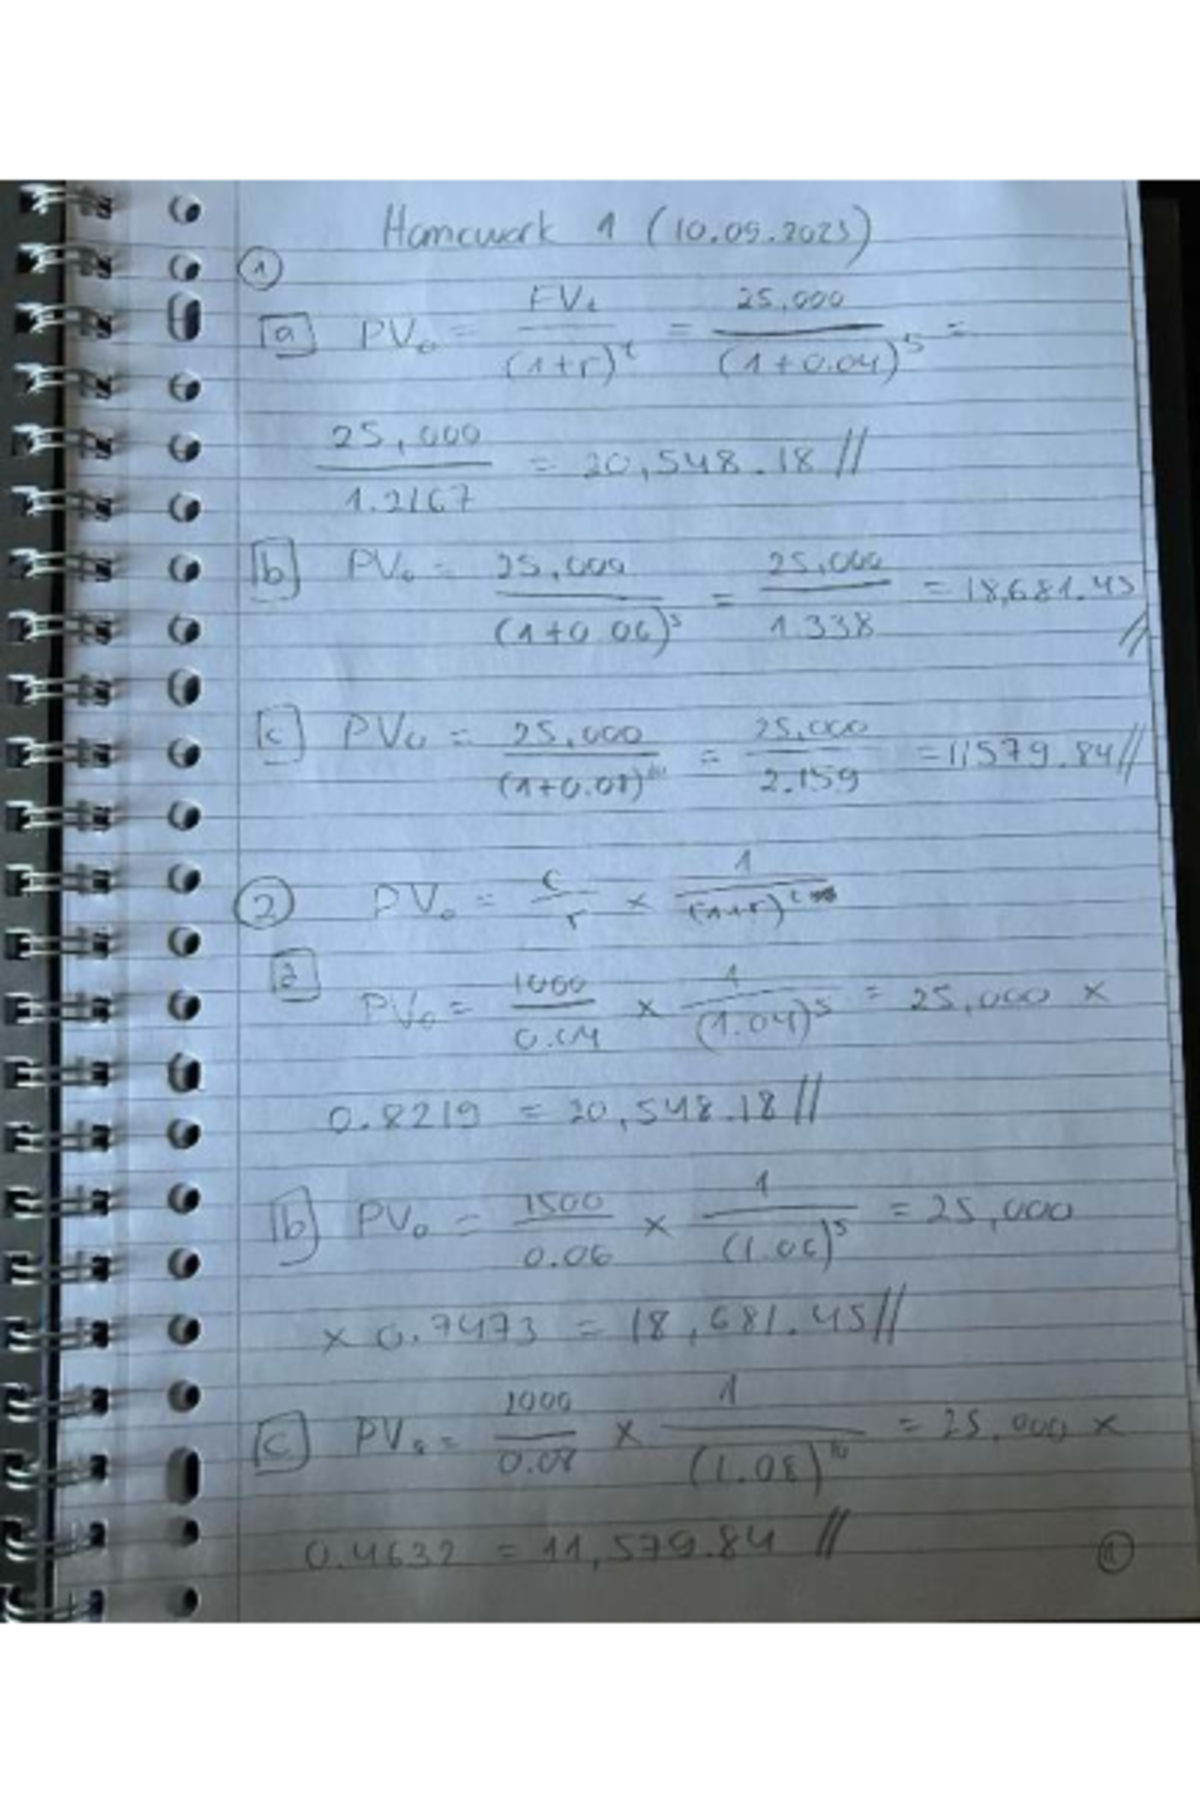 Homework 1 (10.09.2023)
1
a PV₀ = FVt / (1+r)^t = 25,000 / (1+0.04)^5 =
25,000 / 1.2167 = 20,548.18 //
b PV₀ = 25,000 / (1+0.06)^5 = 25,000 / 1.338 = 18,681.45 //
c PV₀ = 25,000 / (1+0.08)^10 = 25,000 / 2.159 = 11579.84 //
2 PV₀ = c / r × 1 / (1+r)^t
a
PV₀ = 1000 / 0.04 × 1 / (1.04)^5 = 25,000 ×
0.8219 = 20,548.18 //
b PV₀ = 1500 / 0.06 × 1 / (1.06)^5 = 25,000
× 0.7473 = 18,681.45 //
c PV₀ = 2000 / 0.08 × 1 / (1.08)^10 = 25,000 ×
0.4632 = 11,579.84 //
1